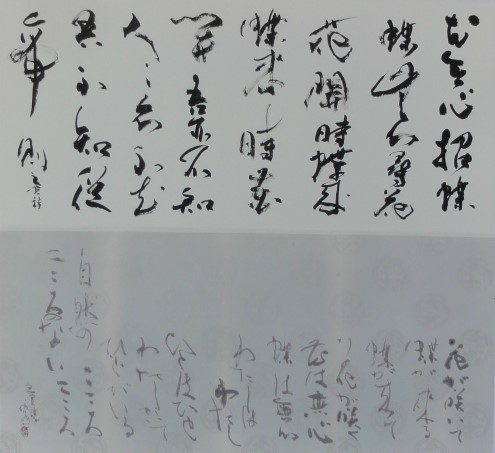 花無心招蝶
蝶無心尋花
花開時蝶来
蝶来時花
開吾亦不知
人々亦不知
吾不知従
帝則
花が咲いて
蝶が来る
蝶が来て
花が咲く
花は無心
蝶は無心
わたしはわたし
ひとはひと
わたしがいて
ひとがいる
自然のこころ
こころないこころ